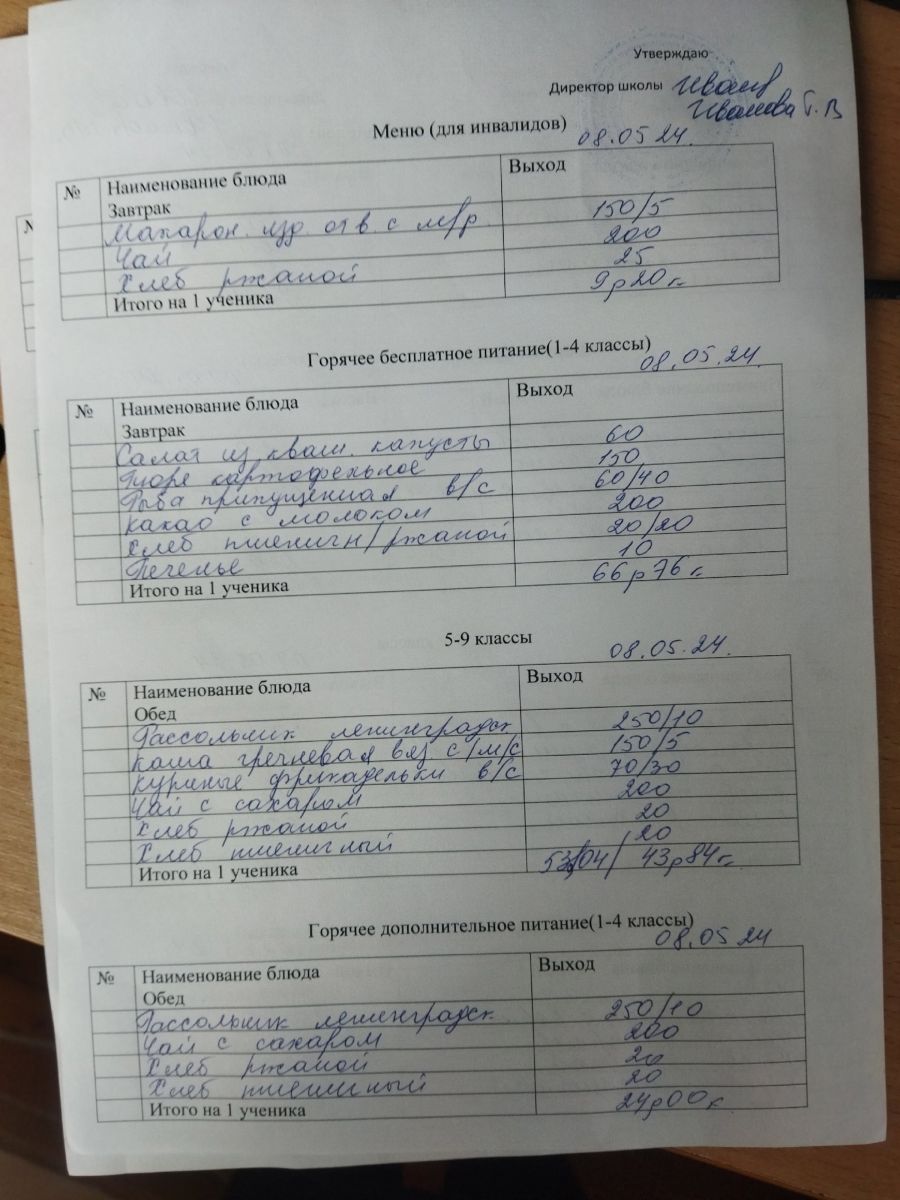 Утверждаю
Директор школы Иванова Г. В
Меню (для инвалидов)
08.05 24.
№ Наименование блюда Выход
Завтрак
Макарон. изд. отв. с м/р. 150/5
Чай 200
Хлеб ржаной 25
Итого на 1 ученика 9р20к.
Горячее бесплатное питание(1-4 классы)
08.05.24.
№ Наименование блюда Выход
Завтрак
Салат из кваш. капусты 60
Пюре картофельное 150
Рыба припущенная в/с 60/40
Какао с молоком 200
Хлеб пшеничн/ржаной 20/20
Печенье 10
Итого на 1 ученика 66р76к.
5-9 классы
08.05.24.
№ Наименование блюда Выход
Обед
Рассольник ленинградск 250/10
Каша гречневая вяз с/м/с 150/5
Куриные фрикадельки в/с 70/30
Чай с сахаром 200
Хлеб ржаной 20
Хлеб пшеничный 20
Итого на 1 ученика 53р04/ 43р84к.
Горячее дополнительное питание(1-4 классы)
08.05 24
№ Наименование блюда Выход
Обед
Рассольник ленинградск 250/10
Чай с сахаром 200
Хлеб ржаной 20
Хлеб пшеничный 20
Итого на 1 ученика 24р00к